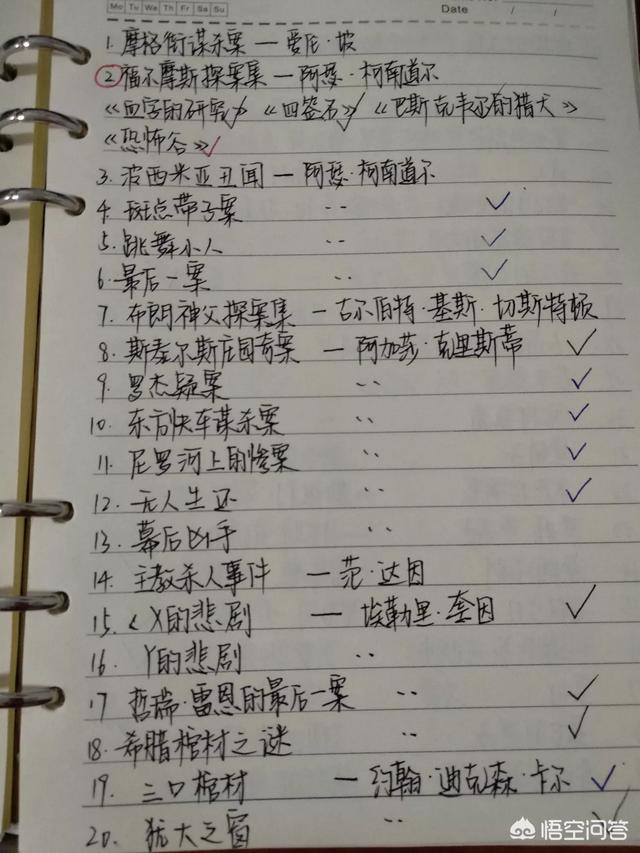 Mo Tu We Th Fr Sa Su
Date / /
1. 摩格街谋杀案 — 爱伦·坡
2. 福尔摩斯探案集 — 阿瑟·柯南道尔
《血字的研究》✓ 《四签名》✓ 《巴斯克韦尔的猎犬》
《恐怖谷》✓
3. 波西米亚丑闻 — 阿瑟·柯南道尔
4. 斑点带子案 ·· ✓
5. 跳舞小人 ·· ✓
6. 最后一案 ·· ✓
7. 布朗神父探案集 — 吉尔伯特·基斯·切斯特顿
8. 斯泰尔斯庄园奇案 — 阿加莎·克里斯蒂 ✓
9. 罗杰疑案 ·· ✓
10. 东方快车谋杀案 ·· ✓
11. 尼罗河上的惨案 ·· ✓
12. 无人生还 ·· ✓
13. 幕后凶手 ··
14. 主教杀人事件 — 范·达因
15. 《X的悲剧 — 埃勒里·奎因 ✓
16. Y的悲剧 ··
17 哲瑞·雷恩的最后一案 ·· ✓
18. 希腊棺材之谜 ·· ✓
19. 三口棺材 — 约翰·迪克森·卡尔 ✓
20. 犹大之窗 ·· ✓
悟空问答